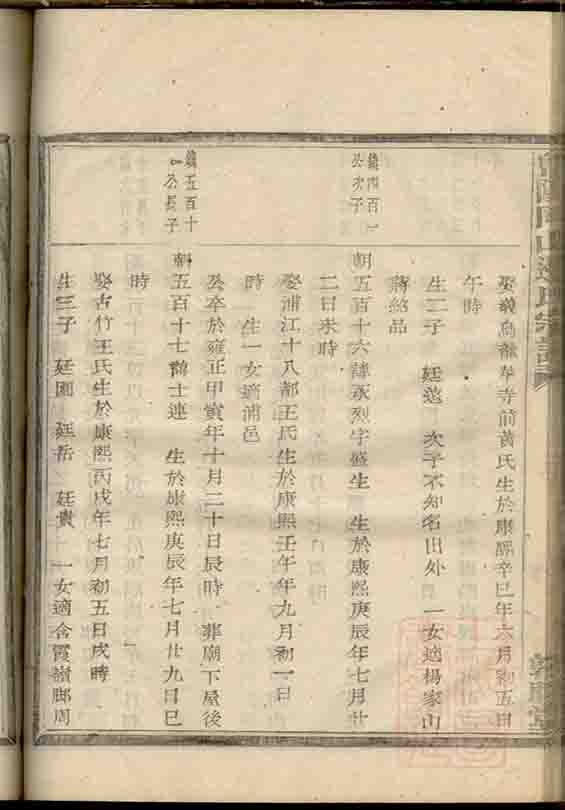 娶義烏龍華寺前黃氏生於康熙辛巳年六月初五日
午時
生二子 廷蓮 次子不知名出外 一女適楊家山
蔣紹品
鎮四百一
公次子
朝五百十六諱永烈字盛生 生於康熙庚辰年七月廿
二日未時
娶浦江十八都王氏生於康熙壬午年九月初一日
時 生一女適浦邑
公卒於雍正甲寅年十月二十日辰時 葬廟下屋後
鎮五百十
一公長子
朝五百十七諱士連 生於康熙庚辰年七月廿九日巳
時
娶古竹王氏生於康熙丙戌年七月初五日戌時
生三子 廷圓 廷岳 廷貴 一女適合霞嶺邸周